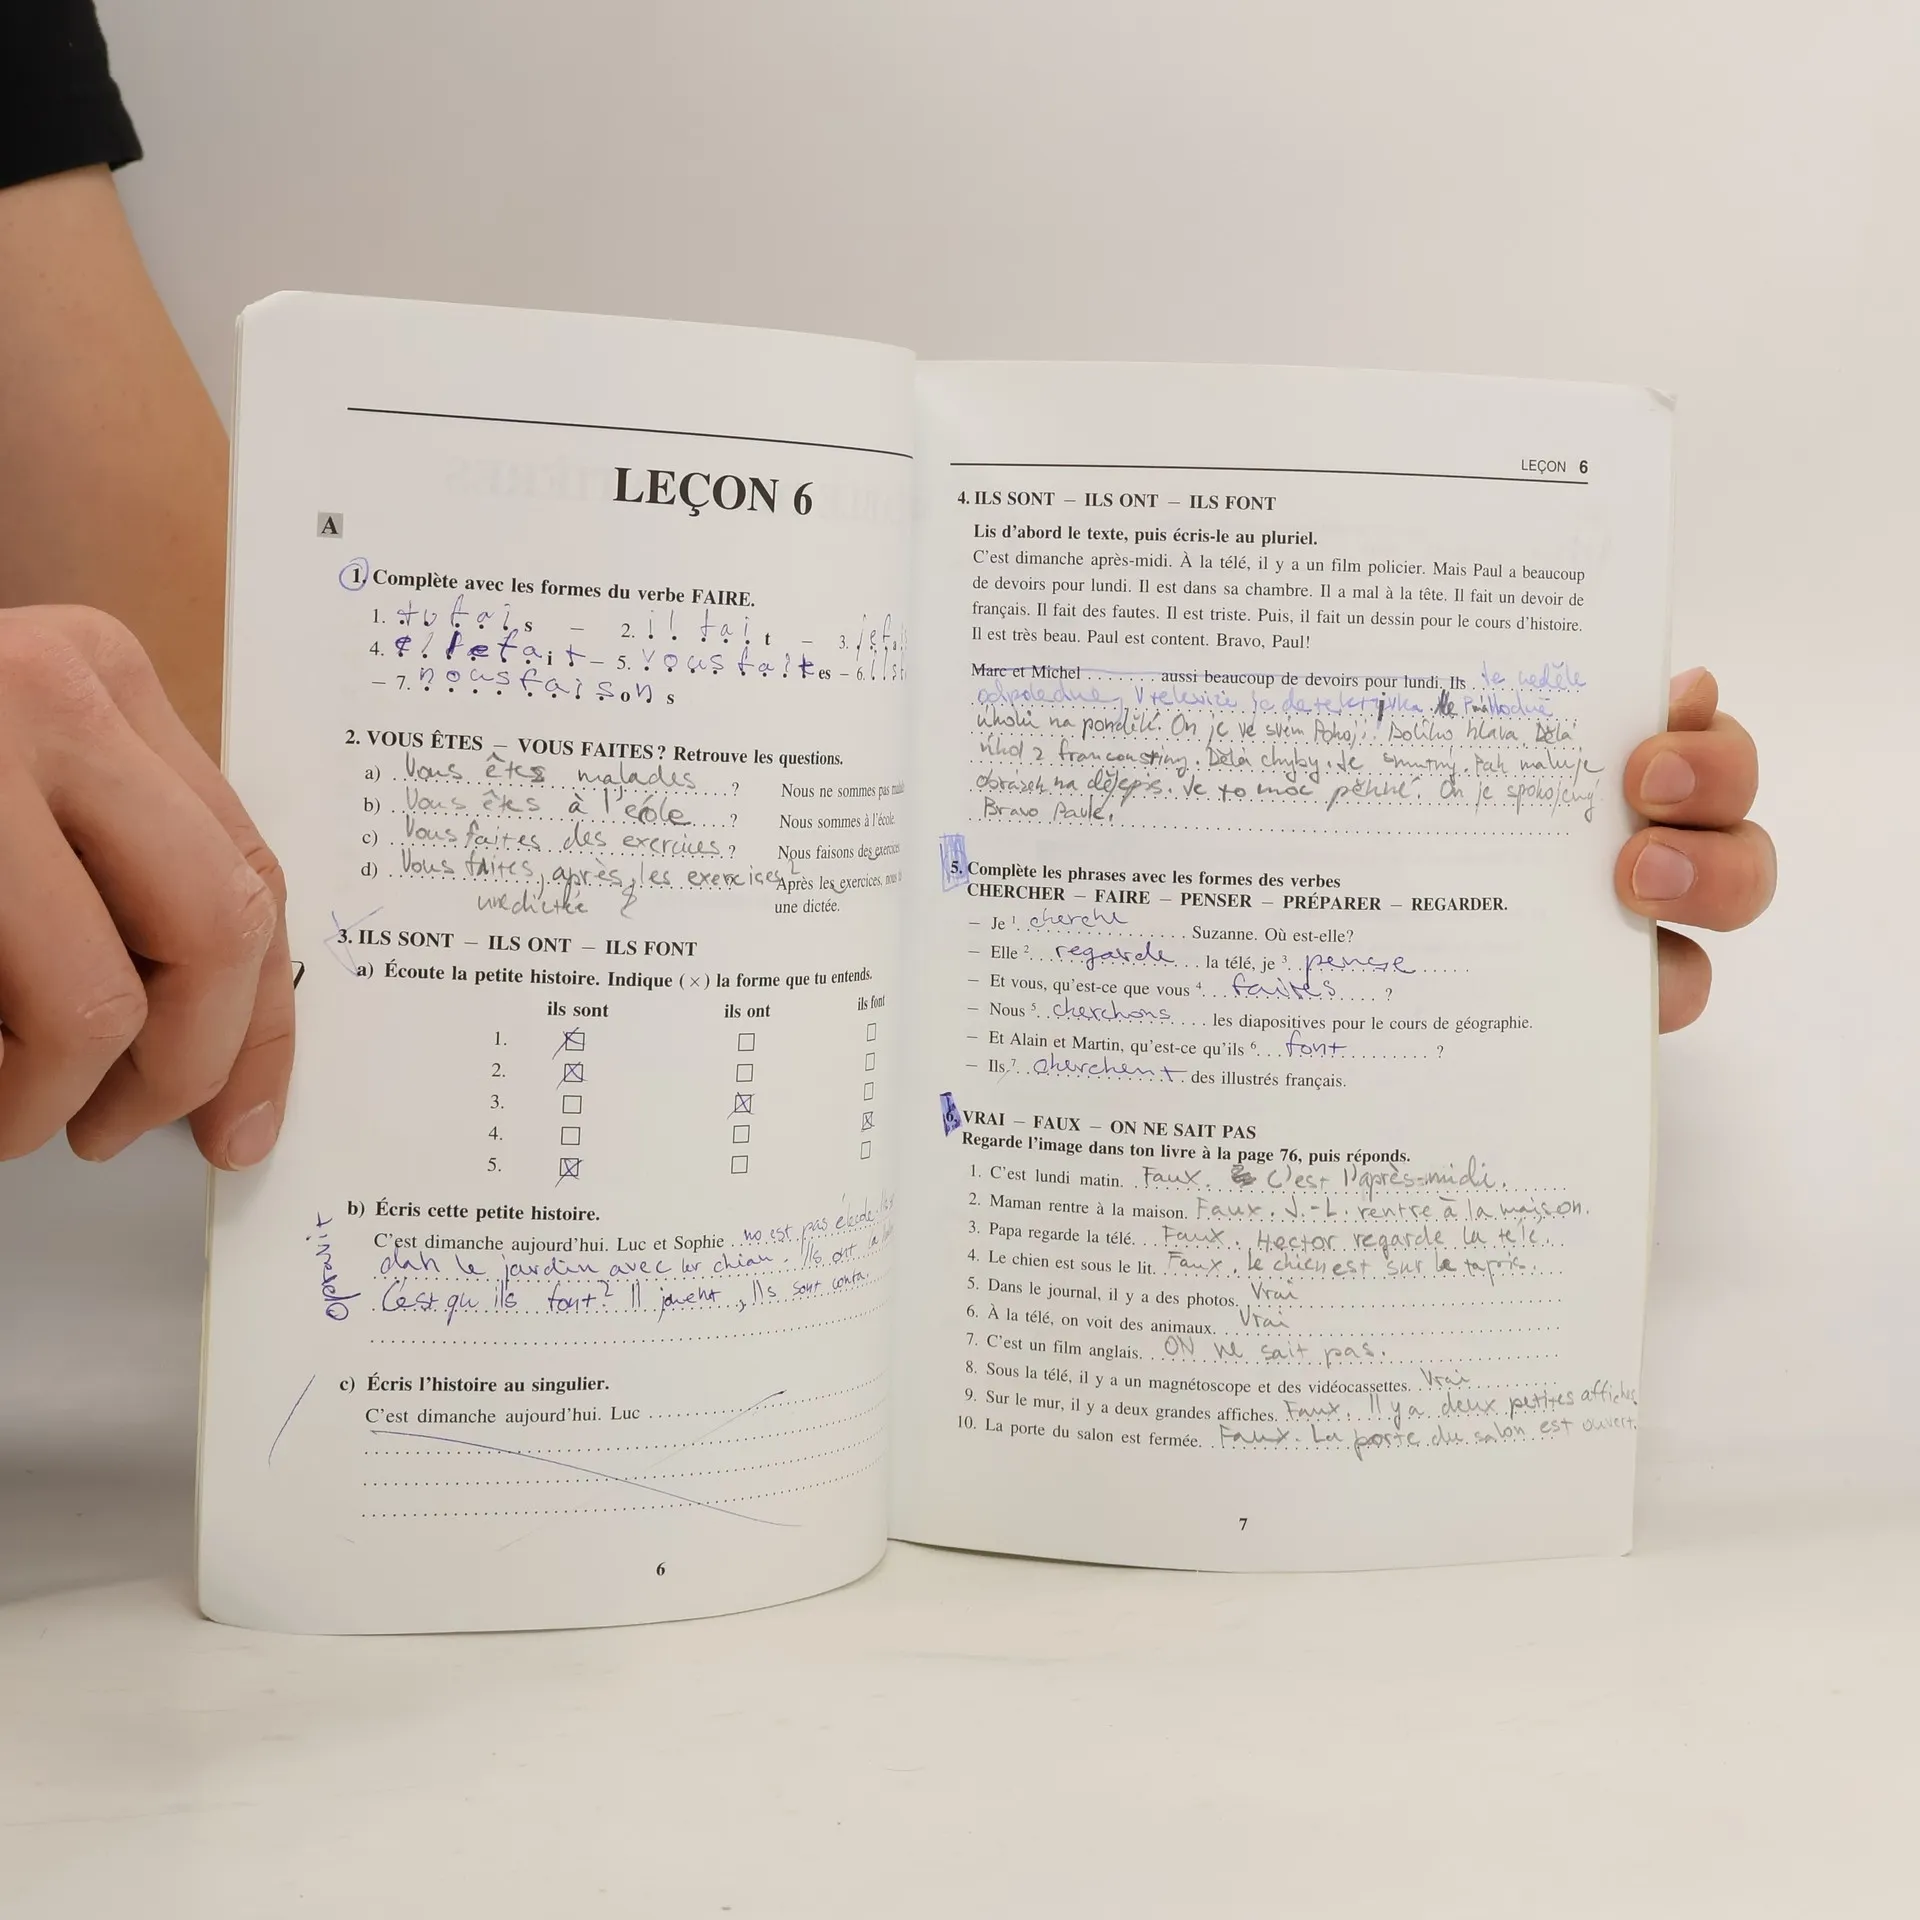 LEÇON 6
A
1. Complète avec les formes du verbe FAIRE.
1. tu fais – 2. il fait – 3.
4. elle fait – 5. vous faites – 6. ils
– 7. nous faisons
2. VOUS ÊTES – VOUS FAITES? Retrouve les questions.
a) Vous êtes malades ? Nous ne sommes pas
b) Vous êtes à l'école ? Nous sommes à l'école.
c) Vous faites des exercices ? Nous faisons des exercices
d) Vous faites, après les exercices Après les exercices,
une dictée ? une dictée.
3. ILS SONT – ILS ONT – ILS FONT
a) Écoute la petite histoire. Indique (×) la forme que tu entends.
ils sont ils ont ils font
1.
2.
3.
4.
5.
b) Écris cette petite histoire.
C'est dimanche aujourd'hui. Luc et Sophie no est pas
dan le jardin avec ler chian. Ils ont la
C'est qu ils font? Il jouent, Ils sont
Opravit
c) Écris l'histoire au singulier.
C'est dimanche aujourd'hui. Luc
6
LEÇON 6
4. ILS SONT – ILS ONT – ILS FONT
Lis d'abord le texte, puis écris-le au pluriel.
C'est dimanche après-midi. À la télé, il y a un film policier. Mais Paul a beaucoup
de devoirs pour lundi. Il est dans sa chambre. Il a mal à la tête. Il fait un devoir de
français. Il fait des fautes. Il est triste. Puis, il fait un dessin pour le cours d'histoire.
Il est très beau. Paul est content. Bravo, Paul!
Marc et Michel aussi beaucoup de devoirs pour lundi. Ils Je neděle
odpoledne, V televizi je detektivka.
úkolů na pondělí. On je ve svém Pokoji. Bolí ho hlava. Dělá
úkol z francouštiny. Dělá chyby. Je smutný. Pak maluje
obrázek na dějepis. Je to moc pěkné. On je spokojený
Bravo Paule!
5. Complète les phrases avec les formes des verbes
CHERCHER – FAIRE – PENSER – PRÉPARER – REGARDER.
– Je ¹ cherche Suzanne. Où est-elle?
– Elle ² regarde la télé, je ³ pense
– Et vous, qu'est-ce que vous ⁴ faites ?
– Nous ⁵ cherchons les diapositives pour le cours de géographie.
– Et Alain et Martin, qu'est-ce qu'ils ⁶ font ?
– Ils ⁷ cherchent des illustrés français.
6. VRAI – FAUX – ON NE SAIT PAS
Regarde l'image dans ton livre à la page 76, puis réponds.
1. C'est lundi matin. Faux. C'est l'après-midi.
2. Maman rentre à la maison. Faux. J.-L. rentre à la maison.
3. Papa regarde la télé. Faux. Hector regarde la télé.
4. Le chien est sous le lit. Faux. Le chien est sur le tapis.
5. Dans le journal, il y a des photos. Vrai
6. À la télé, on voit des animaux. Vrai
7. C'est un film anglais. ON ne sait pas.
8. Sous la télé, il y a un magnétoscope et des vidéocassettes. Vrai
9. Sur le mur, il y a deux grandes affiches. Faux. Il y a deux petites affiches
10. La porte du salon est fermée. Faux. La porte du salon est ouvert.
7